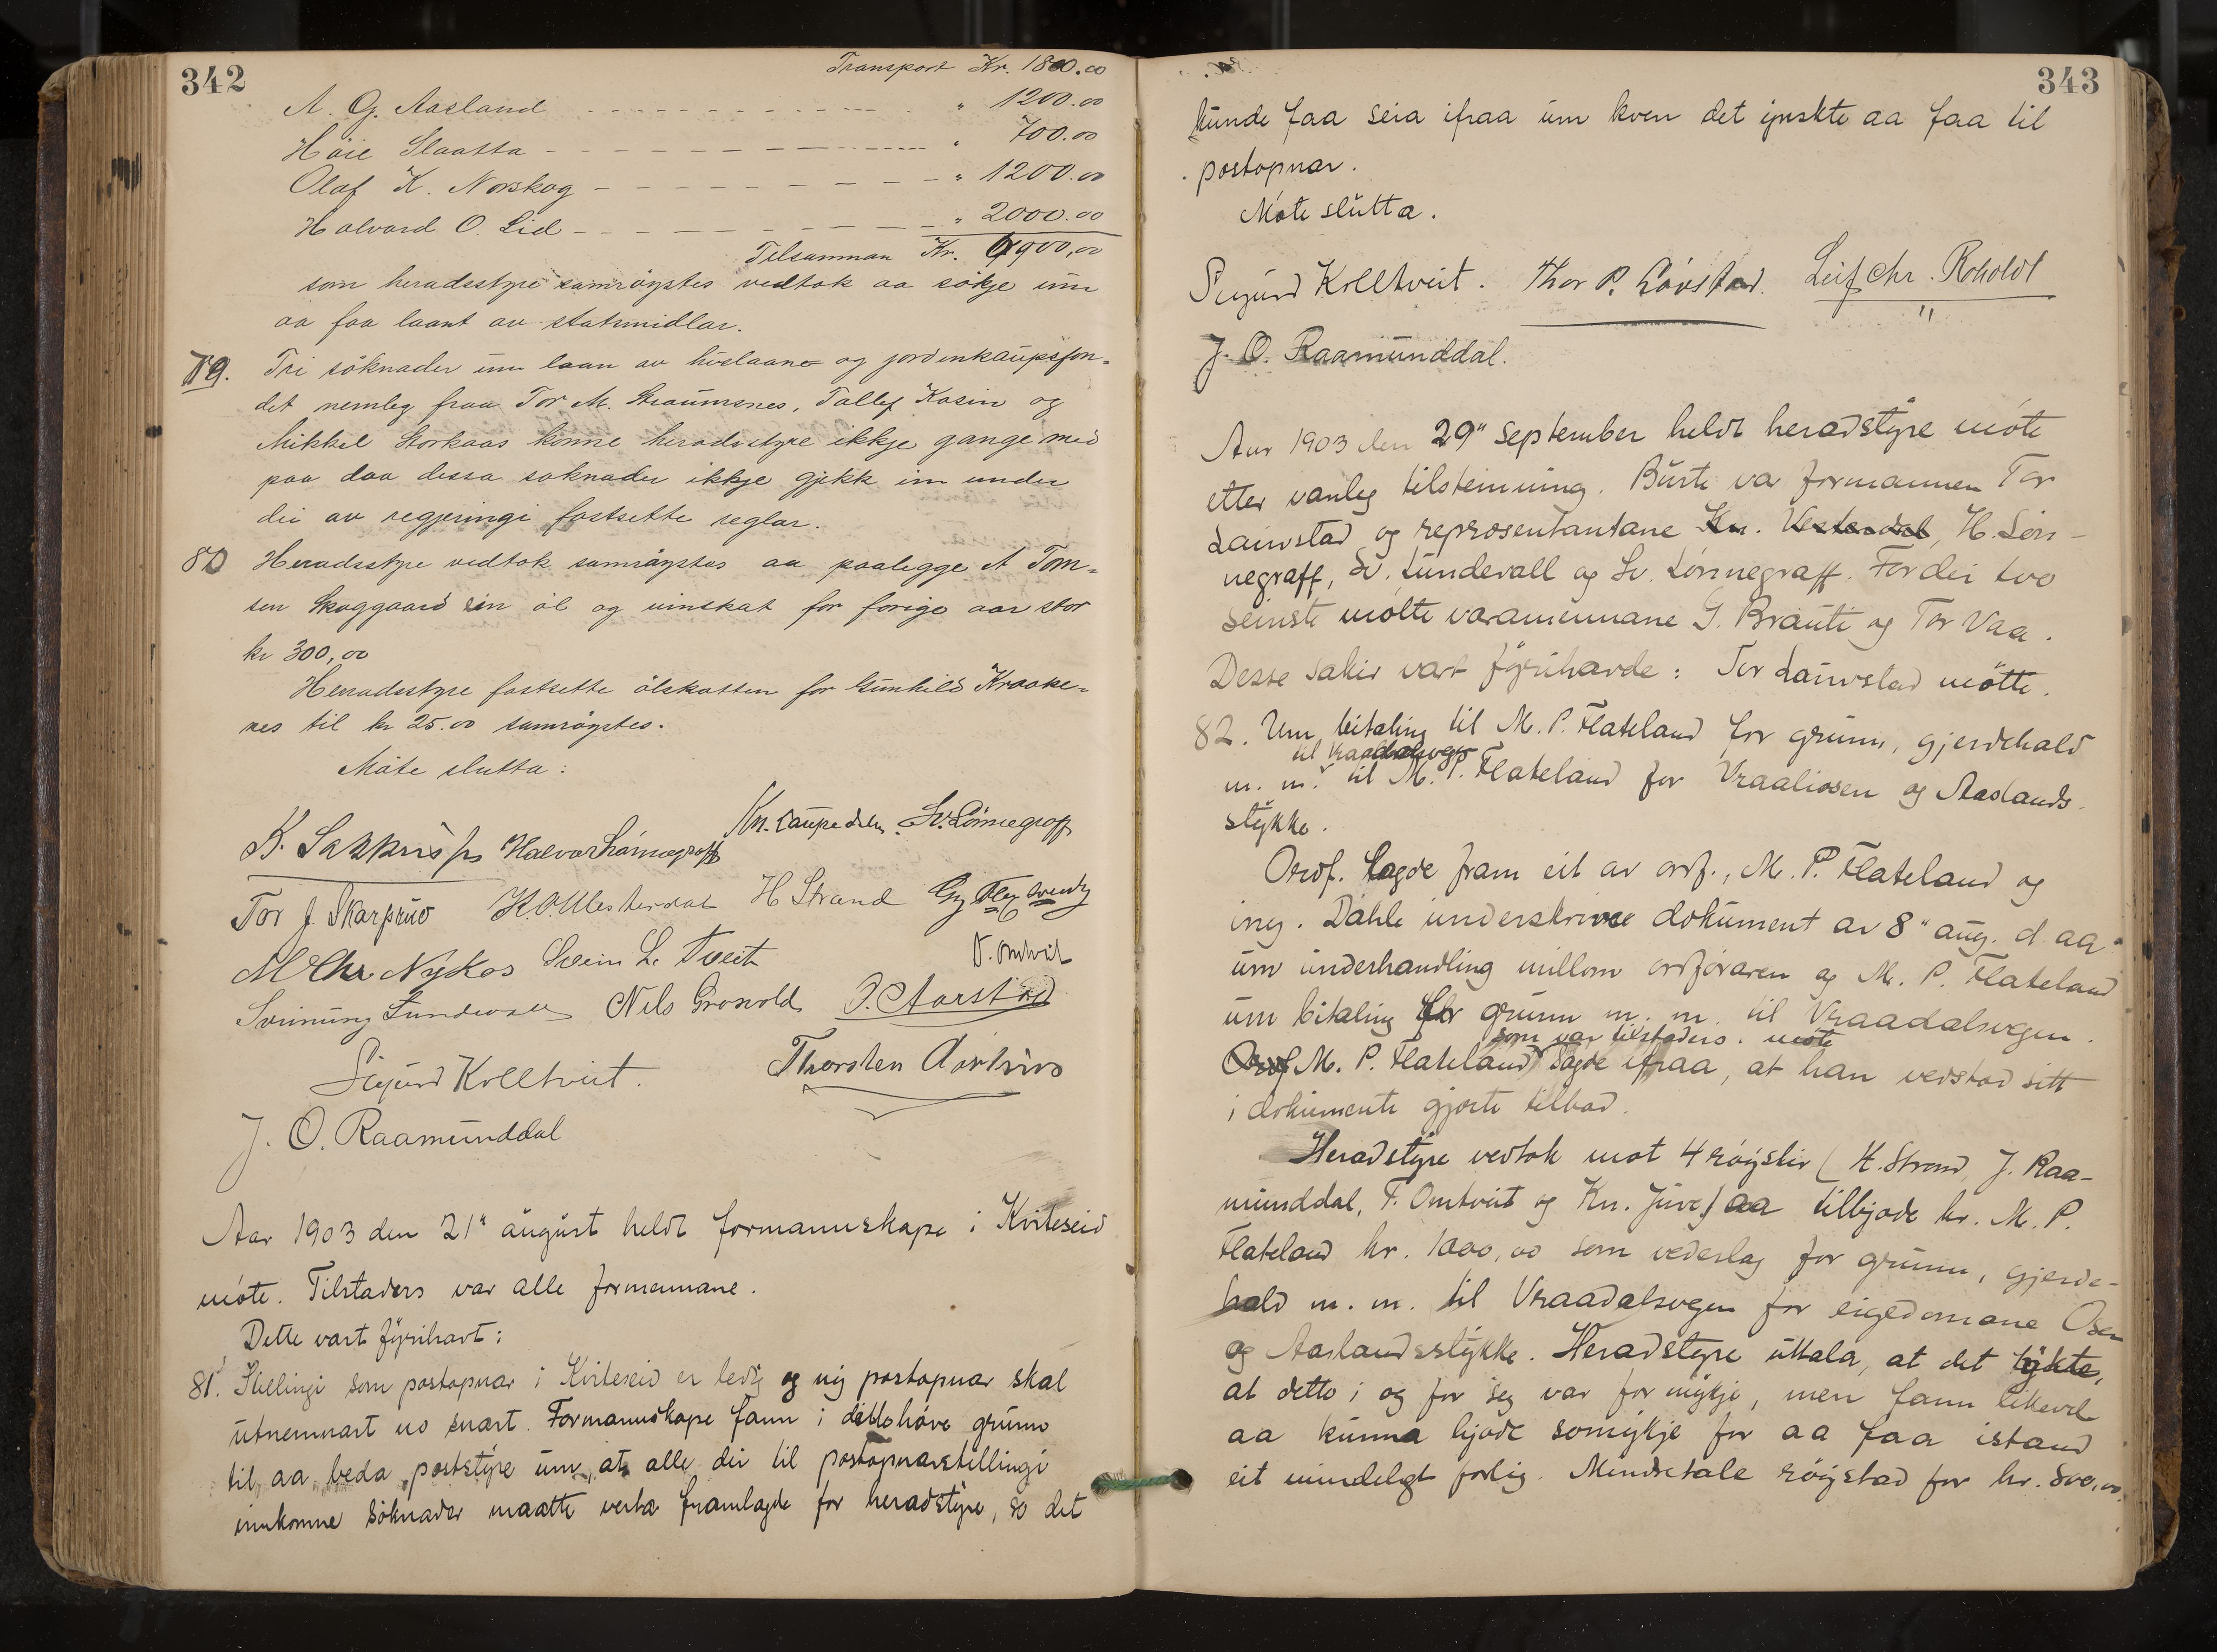 342
Transport Kr. 1800.00
A. G. Aasland " 1200.00
Høie Slaatta " 700.00
Olaf K. Norskog " 1200.00
Halvard O. Lid " 2000.00
Tilsamman Kr. 6900,00
som heradsstyre samrøystes vedtok aa søkje um
aa faa laant av statsmidlar.
79. Tri søknader um laan av huslaane og jordinnkaupsfon-
det nemleg fraa Tor M. Straumsnes, Tallef Kasin og
Mikkel Storkaas kunne heradsstyre ikkje gange med
paa daa dessa søknader ikkje gjekk inn under
dei av regjeringi fastsette reglar.
80 Heradsstyre vedtok samrøystes aa paalegge A Tom-
sen Skoggaard sin øl og vinskat for forige aar stor
kr 300,00
Heradsstyre fastsette ølskatten for Gunhild Kraake-
nes til kr 25.00 samrøystes.
Møte slutta:
Kn. Lauperdalen Sv. Lønnegraff
Halvor Lønnegraff
Tor J. Skarprud K. O. Vesterdal H Strand
M Chr Nykos Svein L. Tveit T. Omtvit
Sveinung Lundevall Nils Grovold O. Aarstad
Sigurd Kolltveit. Thorsten
J. O. Raamunddal
Aar 1903 den 21" august heldt formannskape i Kviteseid
møte. Tilstaders var alle formennane.
Dette vart fyrihavt:
81. Stillingi som postopnar i Kviteseid er ledig og ny postopnar skal
utnemnast no snart. Formannskape fann i detta høve grunn
til aa beda poststyre um, at alle dei til postopnarstillingi
innkomne søknader maatte verta framlagde for heradstyre, so det
343
kunde faa seia ifraa um kven det ynskte aa faa til
postopnar.
Møte slutta.
Sigurd Kolltveit. Thor P. Løvstad. Leif Chr. Roholdt
J. O. Raamunddal.
Aar 1903 den 29" september heldt heradstyre møte
etter vanleg tilstemning. Burte var formannen Tor
Lauvstad og representantane Kn. Vesterdal, H. Løn-
negraff, Sv. Lundevall og Sv. Lønnegraff. For dei tvo
seinste møtte varamennane G. Brauti og Tor Vaa.
Desse saker vart fyrihavde: Tor Lauvstad møtte.
82. Um bitaling til M. P. Flateland for grunn, gjerdehald
til Vraadalsvegen
m. m. til M. P. Flateland for Vraaliosen og Aaslands-
stykke.
Ordf. lagde fram eit av ordf., M. P. Flateland og
ing. Dahle underskrive dokument av 8" aug. d. aa.
um underhandling millom ordføraren og M. P. Flateland
um bitaling for grunn m. m. til Vraadalsvegen.
som var tilstaders i møte
Ordf M. P. Flateland sagde ifraa, at han vedstod sitt
i dokumente gjorte tilbod.
Heradstyre vedtok mot 4 røyster (H. Strand, J. Raa-
munddal, T. Omtveit og Kn. Juve) aa tilbjode hr. M. P.
Flateland kr. 1000,00 som vederlag for grunn, gjerde-
hald m. m. til Vraadalsvegen for eigedomane Osen
og Aaslandsstykke. Heradstyre uttala, at det tykte,
at detta i og for seg var for mykje, men fann likevel
aa kunna bjode somykje for aa faa istand
eit mindelegt forlig. Mindretale røystad for kr. 800,00.